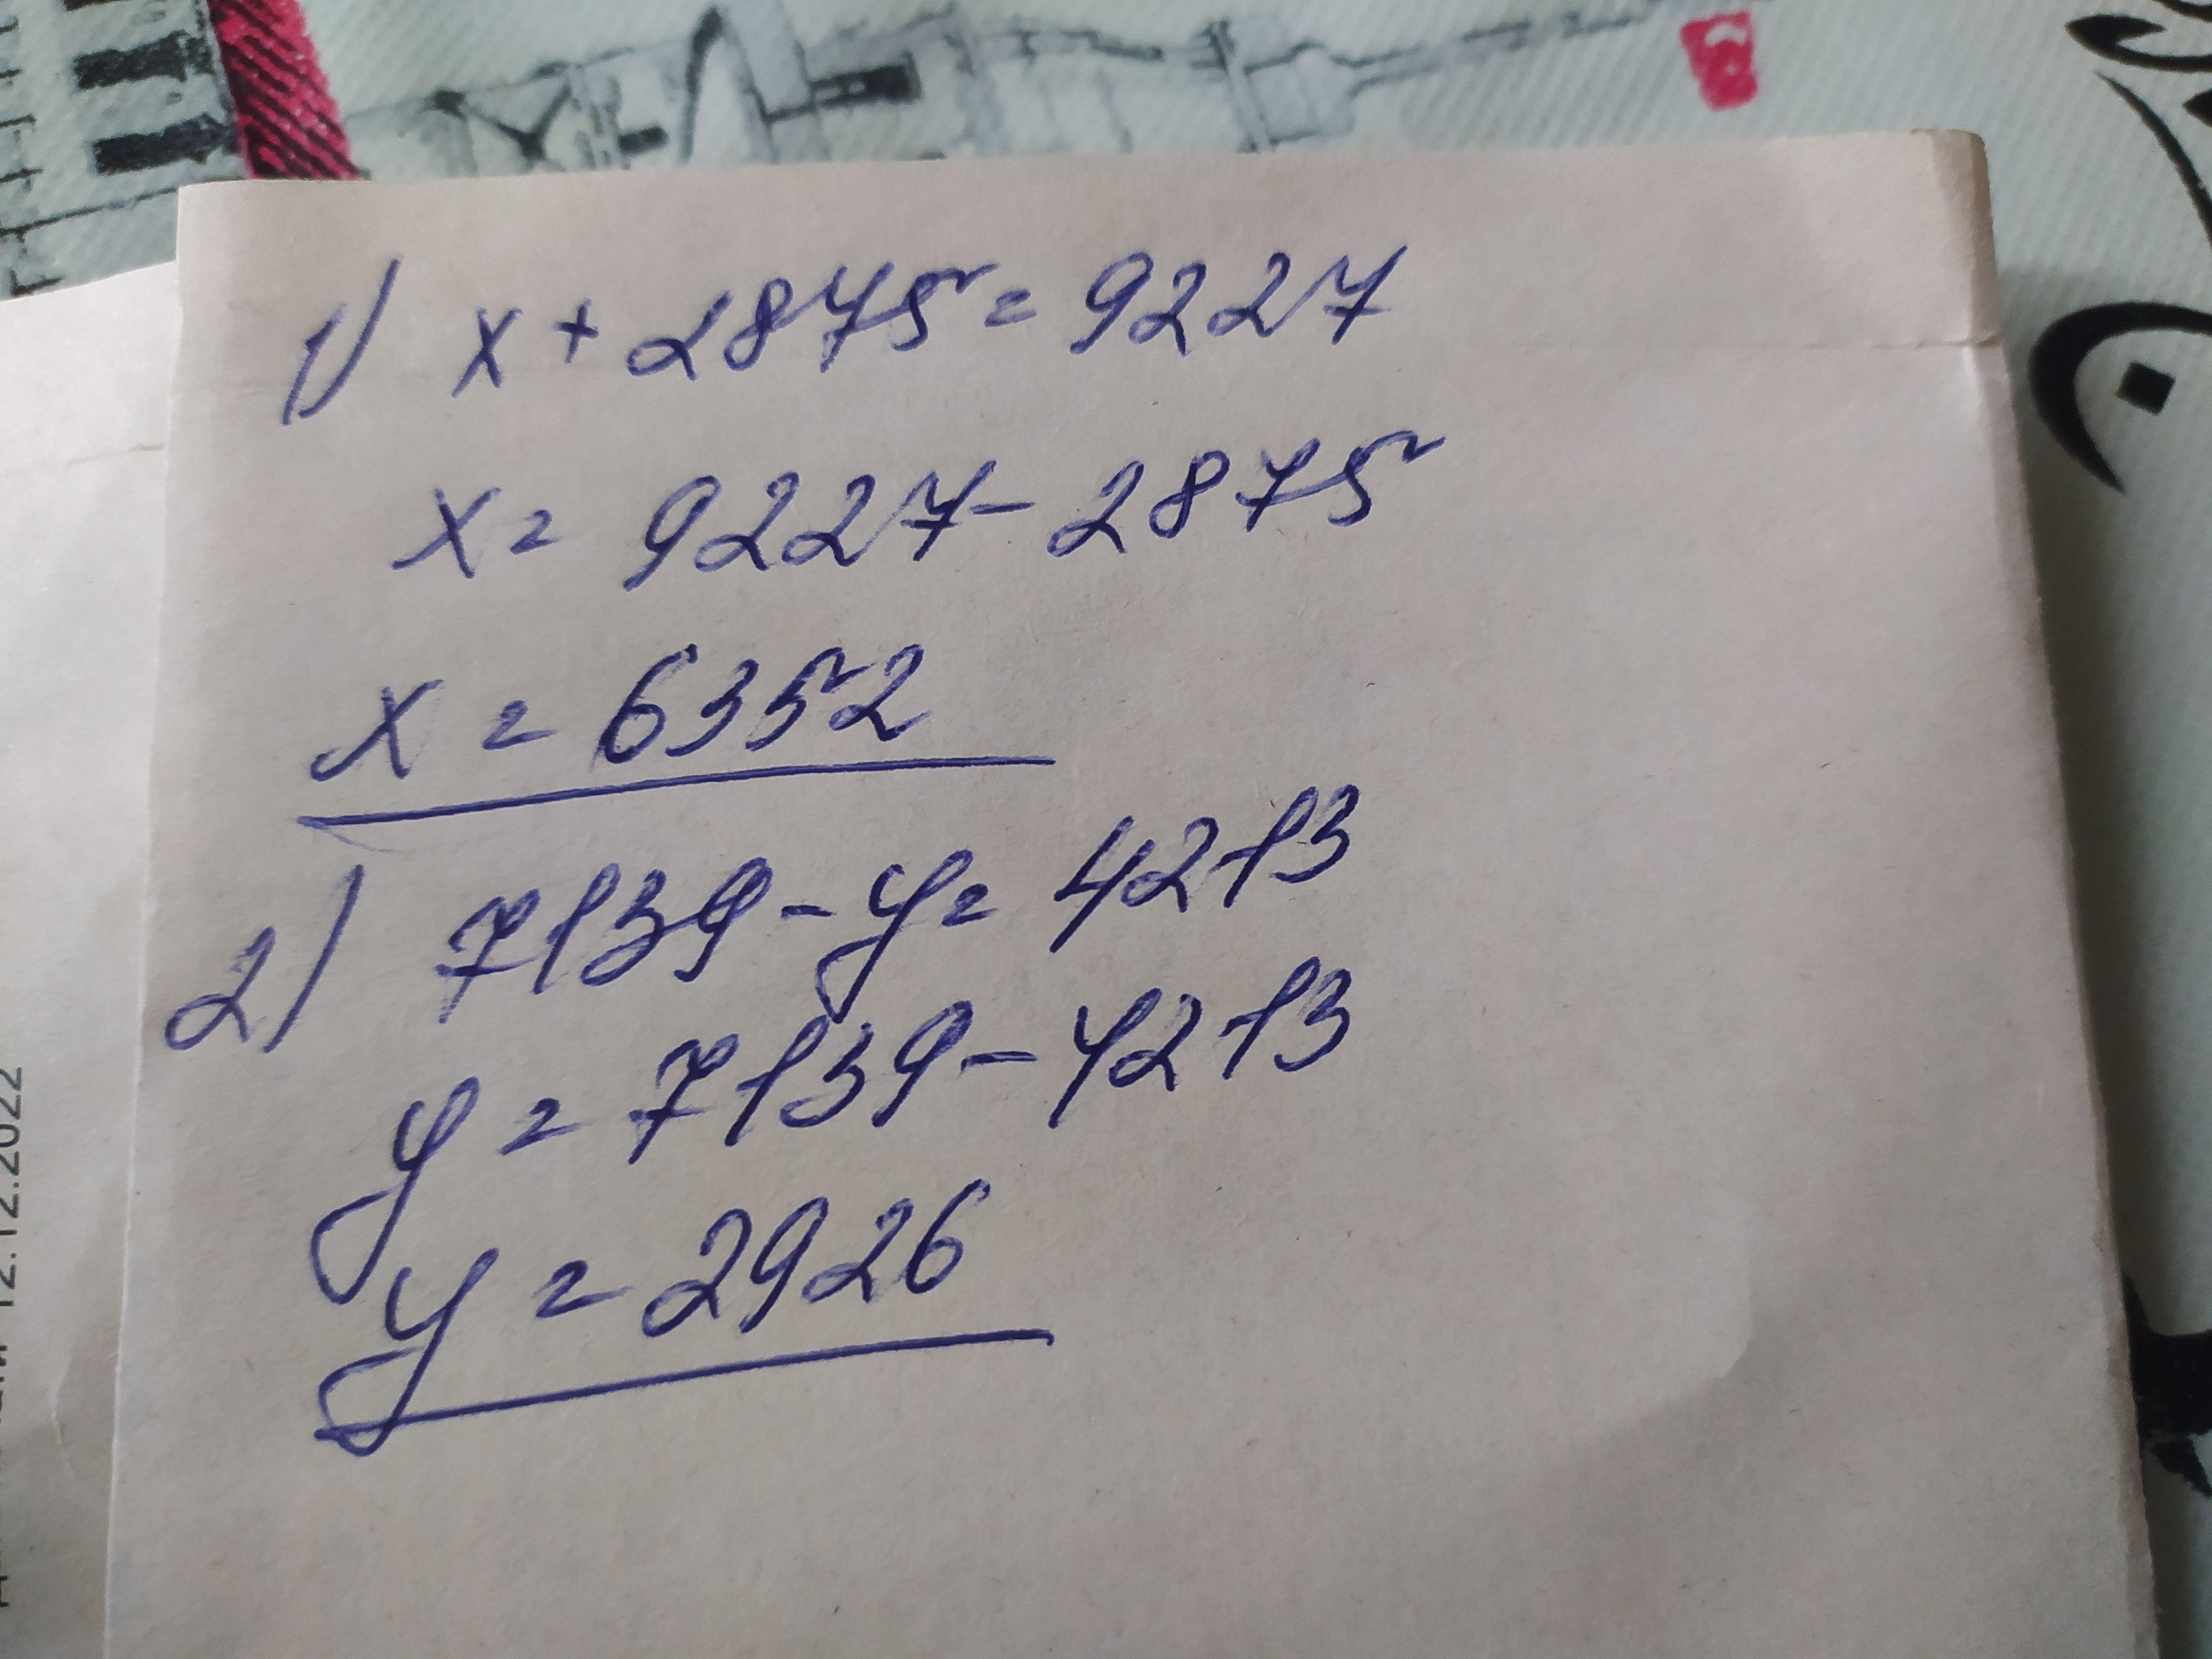 1) x + 2875 = 9227
x = 9227 - 2875
x = 6352
2) 7139 - y = 4213
y = 7139 - 4213
y = 2926
12.12.2022